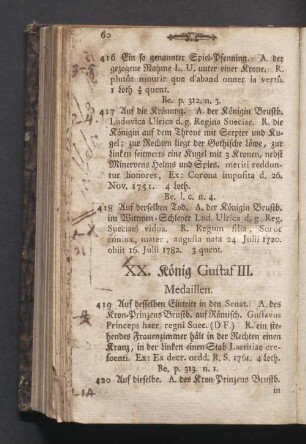 60
416 Ein so genannter Spiel-Pfenning. A. der
gezogene Nahme L. U. unter einer Krone. R.
plutôt mourir que d'aband onner la vertu.
1 loth ½ quent.
Be. p. 312. n. 3.
417 Auf die Krönung. A. der Königin Brustb.
Ludovica Ulrica d. g. Regina Sueciae. R. die
Königin auf dem Throne mit Scepter und Ku-
gel; zur Rechten liegt der Gothische Löwe, zur
Linken seitwerts eine Kugel mit 3 Kronen, nebst
Minervens Helms und Spies. meriti reddun-
tur honores, Ex: Corona imposita d. 26.
Nov. 1751. 4 loth.
Be. l. c. n. 4.
418 Auf derselben Tod. A. der Königin Brustb.
im Wittwen-Schleyer Lud. Ulrica d. g. Reg.
Sueciae vidua. R. Regum filia, Soror
coniux, mater, augusta nata 24. Julii 1720.
obiit 16. Julii 1782. 3 quent.
XX. König Gustaf III.
Medaillen.
419 Auf desselben Eintritt in den Senat. A. des
Kron-Prinzens Brustb. auf Römisch. Gustavus
Princeps haer. regni Suec. (D F.) R. ein ste-
hendes Frauenzimmer hält in der Rechten einen
Kranz, in der linken einen Stab Laetitiae cre-
scenti. Ex: Ex decr. ordd. R. S. 1761. 4 loth.
Be. p. 313. n. 1.
420 Auf dieselbe. A. des Kron-Prinzens Brustb.
in